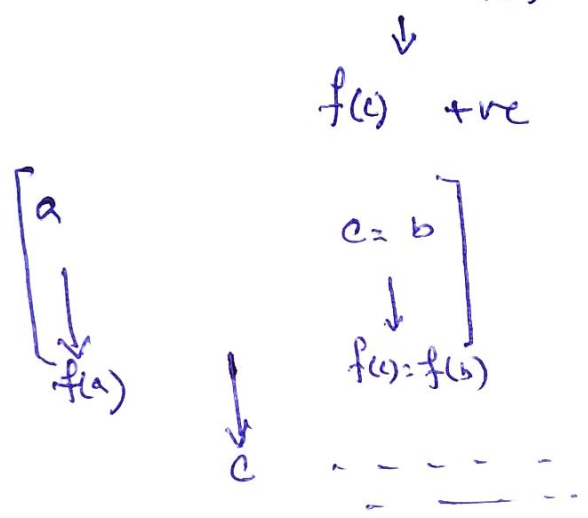 ↓
f(c) +ve
a c = b
↓ ↓
f(a) f(c) = f(b)
↓
C - - - - -
- — - -